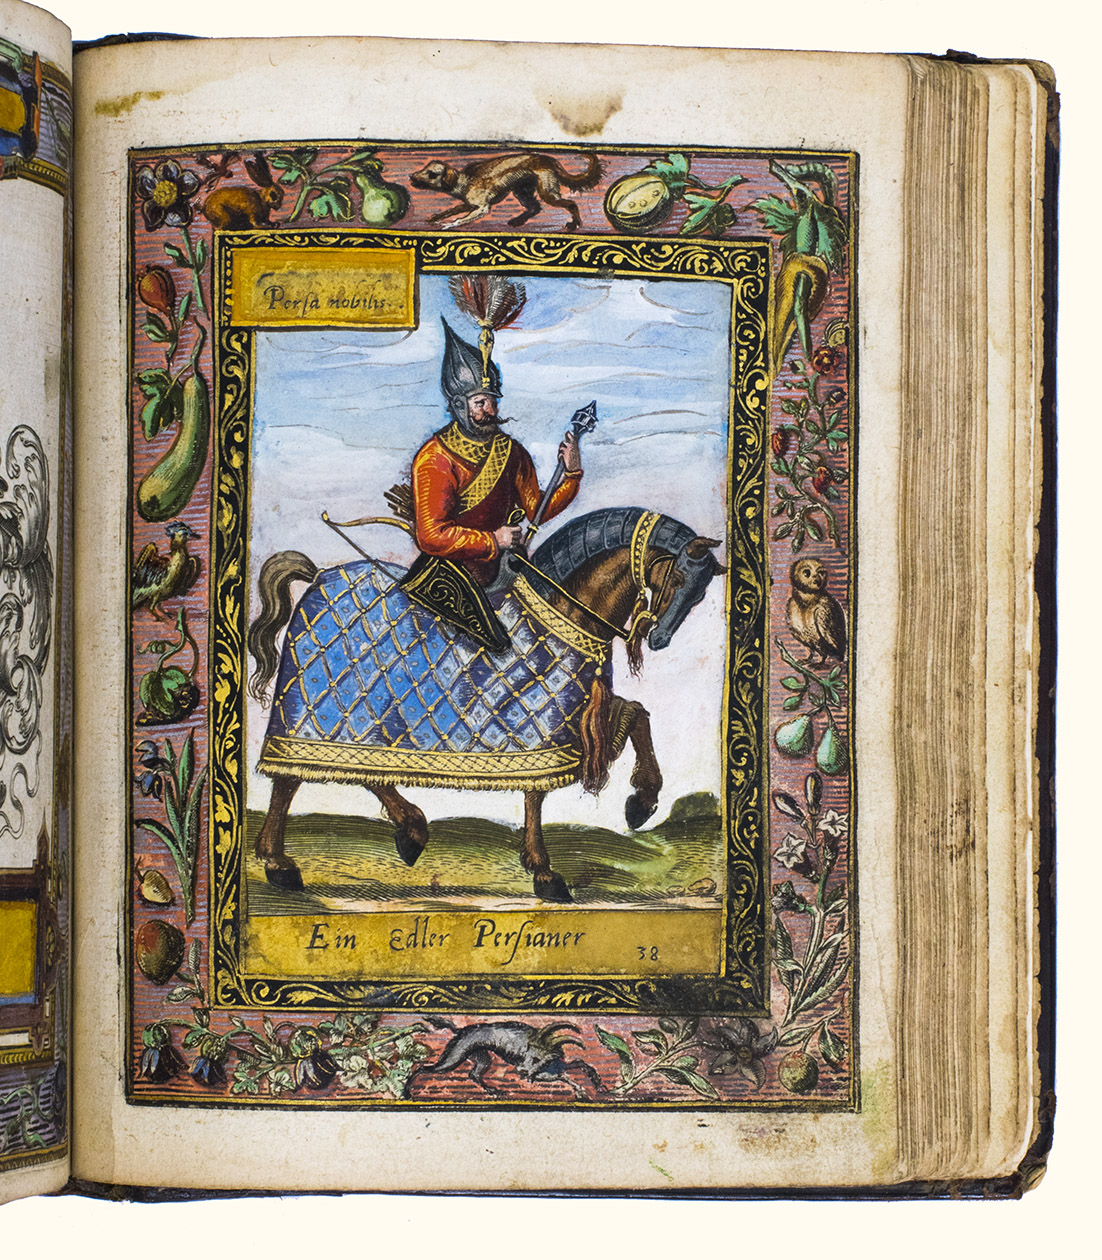 Persa nobilis.
Ein Edler Persianer
38